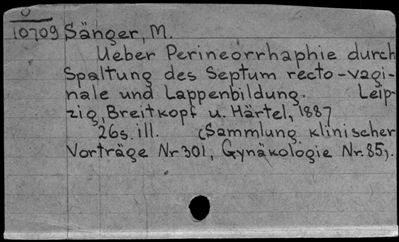 10709 Sänger, M.
Ueber Perineorrhaphie durch
Spaltung des Septum recto-vagi-
nale und Lappenbildung. Leip-
zig, Breitkopf u. Härtel, 1887
26s. ill. (Sammlung klinischer
Vorträge Nr 301, Gynäkologie Nr. 85).